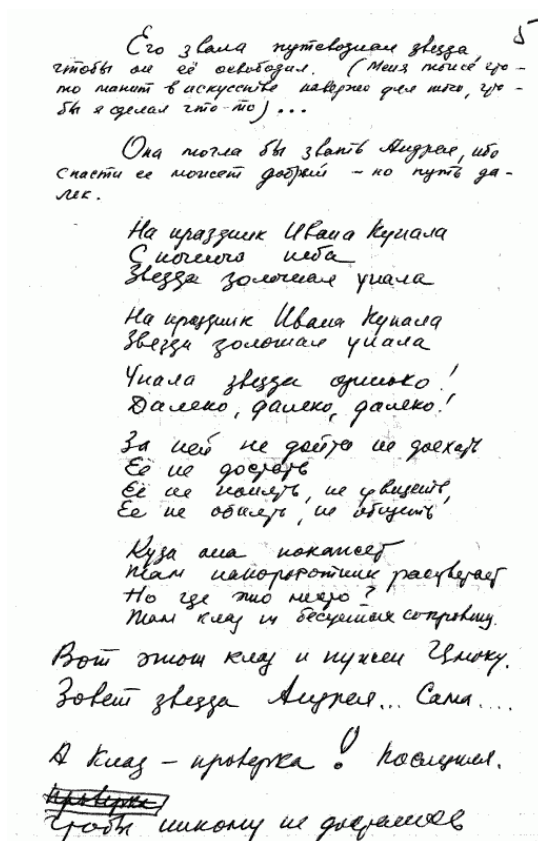 5
Его звала путеводная звезда,
чтобы он её освободил. (Меня тоже что-
то манит в искусстве наверно для того, что-
бы я сделал что-то)...
Она могла бы звать Андрея, ибо
спасти её может добрый – но путь да-
лек.
На праздник Ивана Купала
С ночного неба
Звезда золотая упала
На праздник Ивана Купала
Звезда золотая упала
Упала звезда одиноко!
Далеко, далеко, далеко!
За ней не дойти не доехать
Её не достать
Её не понять, не увидеть,
Её не обнять, не
Куда она покажет
Там папоротник расцветает
Но где это место?
Там клад из бесценных сокровищ.
Вот этот клад и нужен Цмоку.
Зовет звезда Андрея... Сама....
А клад – проверка! Последняя.
проверка
Чтобы никому не достался